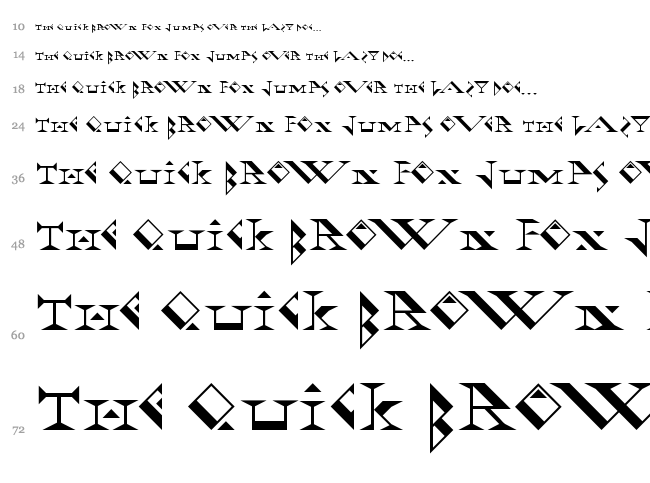 10 The Quick Brown Fox Jumps over the Lazy Dog...
14 The Quick Brown Fox Jumps over the Lazy Dog...
18 The Quick Brown Fox Jumps over the Lazy Dog...
24 The Quick Brown Fox Jumps over the Lazy
36 The Quick Brown Fox Jumps ov
48 The Quick Brown Fox J
60 The Quick Brown
72 The Quick Brow